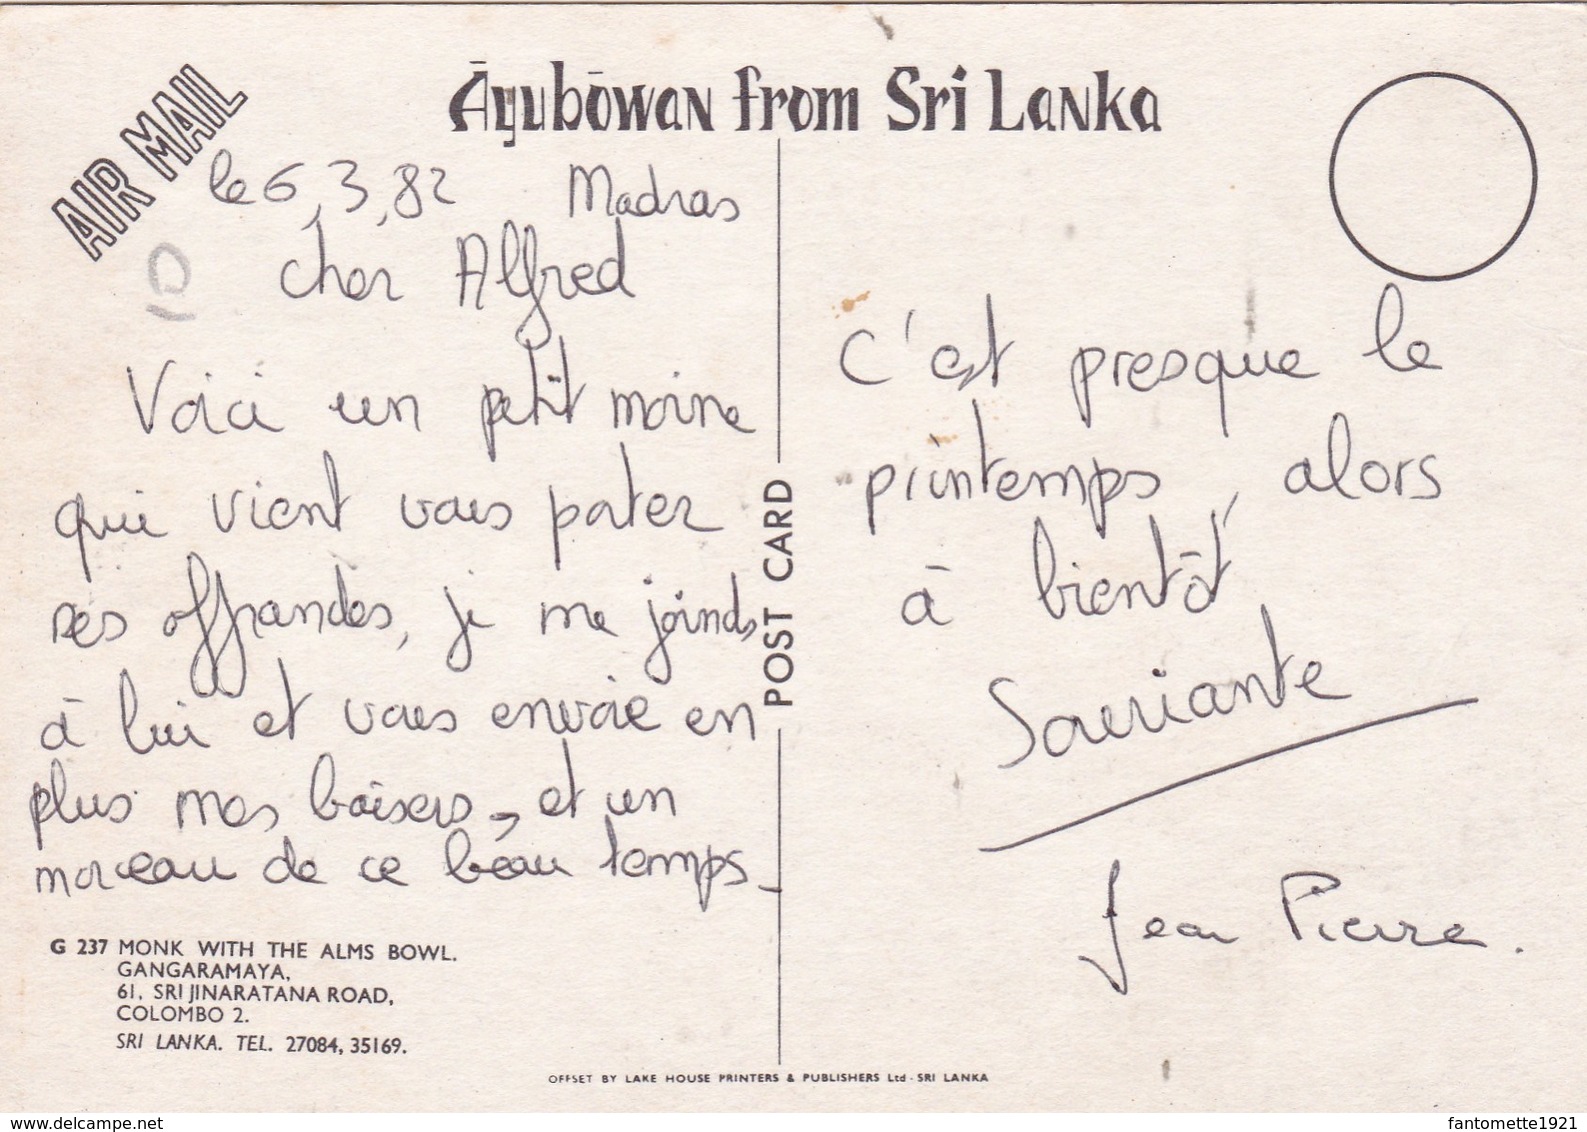 AIR MAIL
Āyubōwan from Sri Lanka
le 6,3,82 Madras
10
cher Alfred
Voici un petit moine
qui vient vous porter
ses offrandes, je me joinds
à lui et vous envoie en
plus mes baisers, et un
morceau de ce beau temps_
C'est presque le
printemps, alors
à bientôt
Souriante
Jean Pierre.
POST CARD
G 237 MONK WITH THE ALMS BOWL.
GANGARAMAYA,
61, SRI JINARATANA ROAD,
COLOMBO 2.
SRI LANKA. TEL. 27084, 35169.
OFFSET BY LAKE HOUSE PRINTERS & PUBLISHERS Ltd - SRI LANKA
www.delcampe.net
fantomette1921